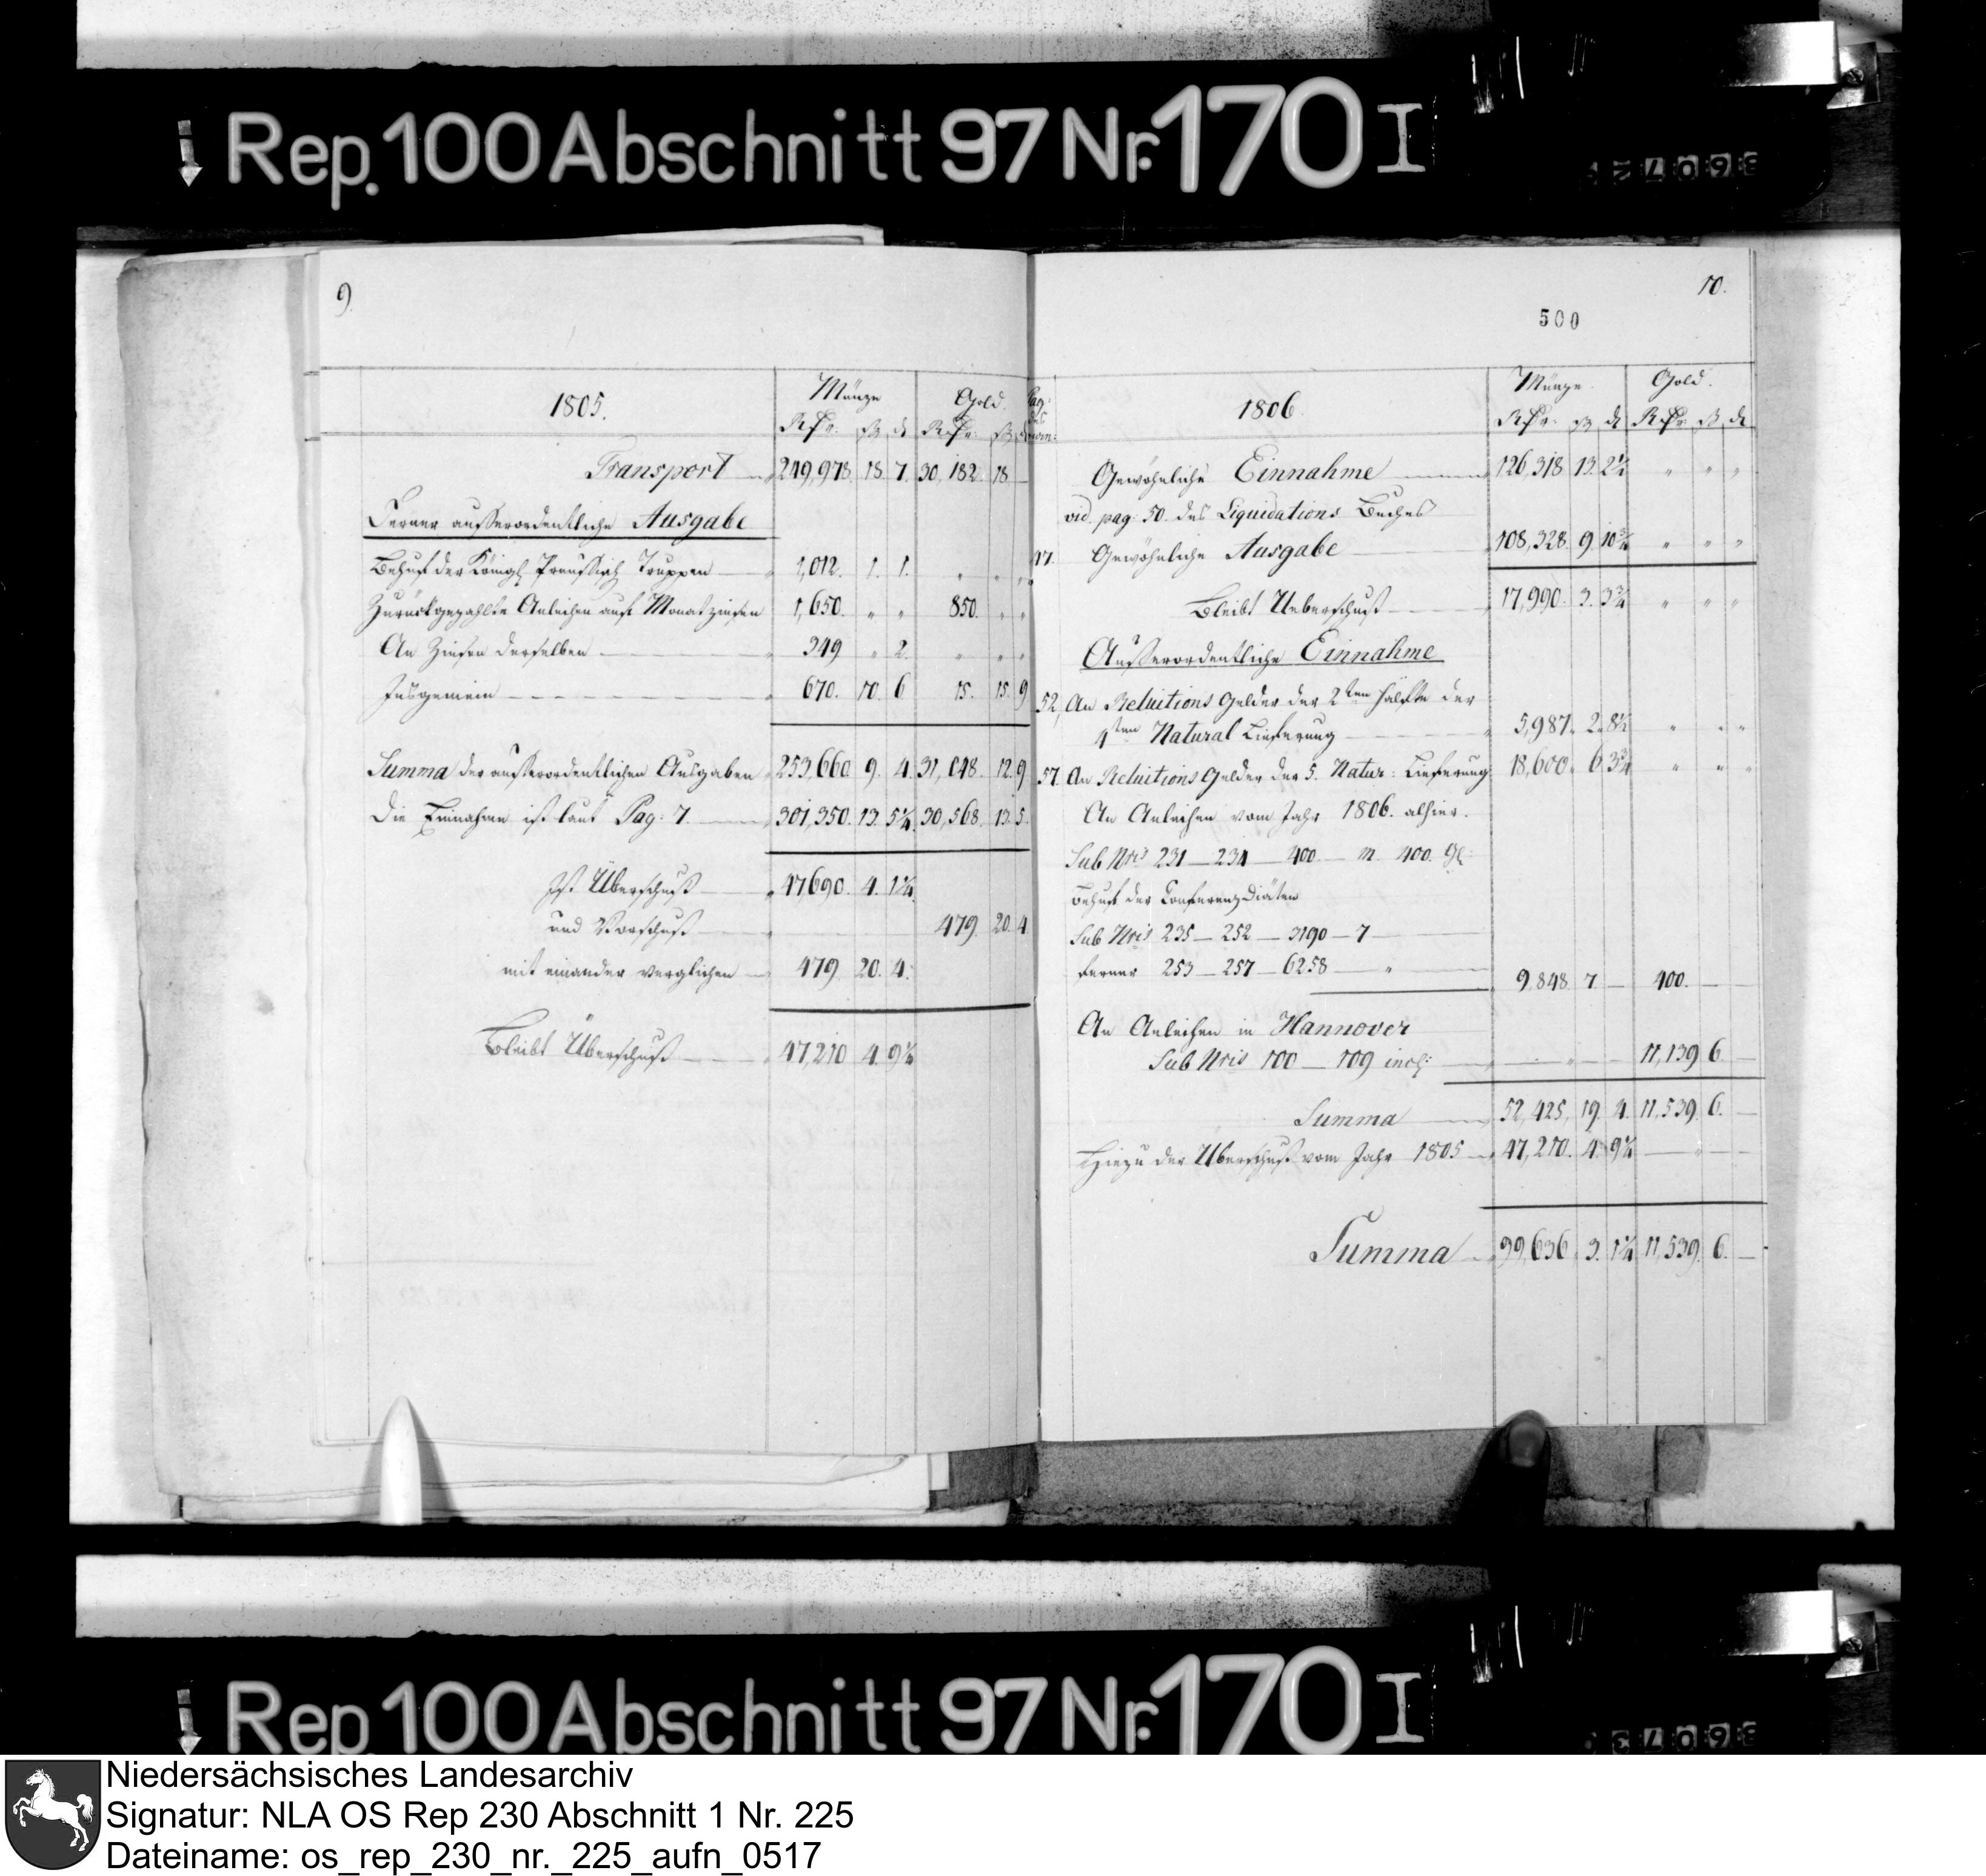 Rep. 100 Abschnitt 97 Nr. 170 I
9.
1805. Münze Gold.
Rthr: ß d Rthr: ß d
Transport 249,978. 18. 7. 30,182. 18. —
Ferner ausserordentliche Ausgabe
Behuf der Königl. Preussisch. Truppen 1,012. 1. 1. " " "
Zurückgezahlte Anleihen auf Monatzinsen 1,650. " " 850. " "
An Zinsen derselben 349 " 2. " " "
Insgemein 670. 10. 6 15. 15. 9
Summa der ausserordentlichen Ausgaben 253,660. 9. 4. 31,048. 12. 9
Die Einnahme ist laut Pag: 7. 301,350. 13. 5¼. 30,568. 13. 5.
Ist Überschuß 47,690. 4. 1¼.
und Vorschuß 479. 20. 4.
mit einander verglichen 479 20. 4.
Bleibt Überschuß 47,210 4. 9¼
10.
500
Pag: des 1806. Münze. Gold.
Rthr: ß d Rthr: ß d
Gewöhnliche Einnahme 126,318 13. 2½ " " "
vid. pag: 50. des Liquidations Buches
47. Gewöhnliche Ausgabe 108,328. 9. 10¾ " " "
Bleibt Ueberschuß 17,990. 3. 3¾ " " "
Ausserordentliche Einnahme
52, An Reluitions Gelder der 2ten Hälfte der
4ten Natural Lieferung 5,987. 2. 8½ " " "
57. An Reluitions Gelder der 5. Natur: Lieferung 18,600. 6. 3¾ " " "
An Anleihen vom Jahr 1806. alhier.
Sub Nris 231 — 234 — 400. — m. 400. G.
Behuf der Conferenz Diäten
Sub Nris 235 — 252 — 3190 — 7
ferner 253 — 257 — 6258 — "
9,848. 7 — 400. — —
An Anleihen in Hannover
Sub Nris 100 — 109 incl: — " — 11,139 6. —
Summa 52,425, 19. 4. 11,539. 6. —
Hiezu der Überschuß vom Jahr 1805 47,210. 4. 9¼ — " —
Summa 99,636. 3. 1¼ 11,539. 6. —
Rep. 100 Abschnitt 97 Nr. 170 I
Niedersächsisches Landesarchiv
Signatur: NLA OS Rep 230 Abschnitt 1 Nr. 225
Dateiname: os_rep_230_nr._225_aufn_0517